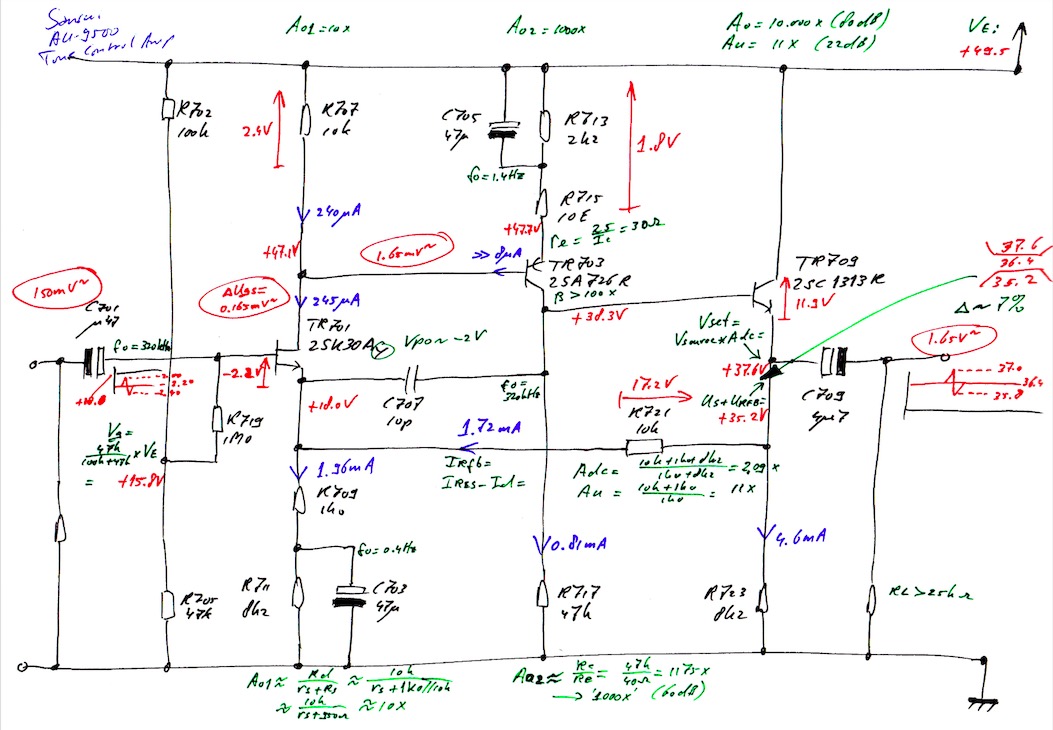 Sansui
AU-9500
Tone Control Amp
Ao1 = 10x
Ao2 = 1000x
Ao = 10.000x (80dB)
Au = 11x (22dB)
VE:
+49.5
R702
100k
2.4V
R707
10k
C705
47µ
R713
2k2
1.8V
fo = 1.4Hz
R715
10E
240µA
+47.1V
1.65mV~
>> 8µA
+47.7V
re = 25/Ic = 30Ω
TR703
2SA726R
B > 100x
TR709
2SC1313R
11.9V
37.6
36.4
35.2
Δ ~ 7%
150mV~
ΔUgs =
0.165mV~
245µA
C701
µ47
fo = 320kHz
TR701
2SK30A Y
Vpo ~ -2V
+38.3V
Vset =
Vsource x Adc =
+37.6V
1.65V~
-2.2V
-2.20
-2.40
+18.0
+18.0V
C707
10p
fo =
320kHz
17.2V
R721
10k
Us + URFB =
+35.2V
C709
4µ7
37.0
36.4
35.8
Vg =
47k/100k+47k x VE
= +15.8V
R719
1M0
1.72mA
IRfb =
IRES - Id =
Adc = 10k+1k0+8k2/1k0+8k2 = 2.09x
Au = 10k+1k0/1k0 = 11x
1.96mA
R709
1k0
fo = 0.4Hz
0.81mA
4.6mA
R705
47k
R711
8k2
C703
47µ
R717
47k
R723
8k2
RL > 25kΩ
Ao1 ≈ Rd/rs+Rs ≈ 10k/rs+1k0//10k
≈ 10k/rs+950Ω ≈ 10x
Ao2 ≈ Rc/Re = 47k/40Ω = 1175x
→ '1000x' (60dB)